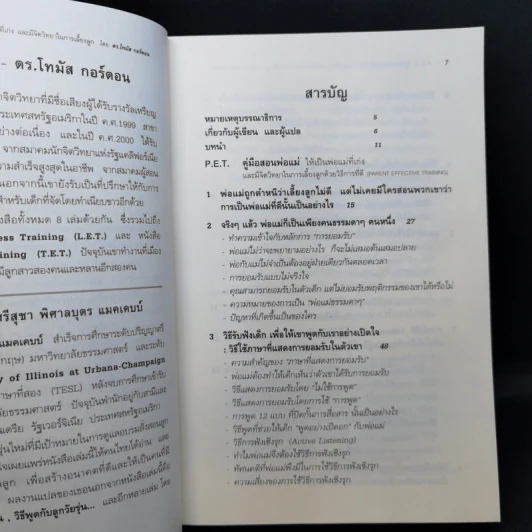 ที่เก่ง และมีจิตวิทยาในการเลี้ยงลูก โดย ดร.โทมัส กอร์ดอน
- ดร.โทมัส กอร์ดอน
กจิตวิทยาที่มีชื่อเสียงผู้ได้รับรางวัลเหรียญ
ประเทศสหรัฐอเมริกาในปี ค.ศ.1999 สาขา
ย่างต่อเนื่อง และในปี ค.ศ.2000 ได้รับ
จากสมาคมนักจิตวิทยาแห่งรัฐแคลิฟอร์เนีย
ความสำเร็จสูงสุดในอาชีพ จากสมาคมผู้สอน
นอกจากนี้เขายังรับเป็นที่ปรึกษาให้กับการ
สำหรับเด็กที่จัดโดยทำเนียบขาวอีกด้วย
สือทั้งหมด 8 เล่มด้วยกัน ซึ่งรวมไปถึง
ess Training (L.E.T.) และ หนังสือ
ining (T.E.T.) ปัจจุบันเขาทำงานที่เมือง
มีลูกสาวสองคนและหลานอีกสองคน
ศรีสุชา พิศาลบุตร แมคเคบบ์
แมคเคบบ์ สำเร็จการศึกษาระดับปริญญาตรี
กฤษ) มหาวิทยาลัยธรรมศาสตร์ และระดับ
y of Illinois at Urbana-Champaign
าษาที่สอง (TESL) หลังจบการศึกษาเข้ารับ
ลัยธรรมศาสตร์ ปัจจุบันพำนักอยู่กับสามีและ
เตรีย รัฐเวอร์จิเนีย ประเทศสหรัฐอเมริกา
รุ่นใหม่ที่มีเป้าหมายในการดูแลอบรมสั่งสอนลูก
ใจเผยแพร่หนังสือเล่มนี้ให้คนไทยได้อ่าน และ
ลูก เพื่อสร้างอนาคตที่ดีและให้เป็นคนที่มี
ผลงานแปลของเธอนอกจากหนังสือเล่มนี้มีอ
น , วิธีพูดกับลูกวัยรุ่น... และอีกหลายเล่ม โดย
7
สารบัญ
หมายเหตุบรรณาธิการ 5
เกี่ยวกับผู้เขียน และผู้แปล 6
บทนำ 11
P.E.T. คู่มือสอนพ่อแม่ ให้เป็นพ่อแม่ที่เก่ง
และมีจิตวิทยาในการเลี้ยงลูกด้วยวิธีการที่ดี (PARENT EFFECTIVE TRAINING)
1 พ่อแม่ถูกตำหนิว่าเลี้ยงลูกไม่ดี แต่ไม่เคยมีใครสอนพวกเขาว่า
การเป็นพ่อแม่ที่ดีนั้นเป็นอย่างไร 15
2 จริงๆ แล้ว พ่อแม่ก็เป็นเพียงคนธรรมดาๆ คนหนึ่ง 27
- ทำความเข้าใจกับหลักการ "การยอมรับ"
- พ่อแม่ไม่ว่าจะพยายามอย่างไร ก็จะไม่เสมอต้นเสมอปลาย
- พ่อกับแม่ไม่จำเป็นต้องอยู่ฝ่ายเดียวกันตลอดเวลา
- การยอมรับแบบไม่จริงใจ
- คุณสามารถยอมรับในตัวเด็ก แต่ไม่ยอมรับพฤติกรรมของเขาได้หรือไม่
- ความหมายของการเป็น "พ่อแม่ธรรมดาๆ"
- ปัญหาที่เกิดขึ้นเป็นของใคร
3 วิธีรับฟังเด็ก เพื่อให้เขาพูดกับเราอย่างเปิดใจ
: วิธีใช้ภาษาที่แสดงการยอมรับในตัวเขา 48
- ความสำคัญของ "ภาษาที่แสดงการยอมรับ"
- พ่อแม่ต้องทำให้เด็กเห็นว่าตัวเขาได้รับการยอมรับ
- วิธีแสดงการยอมรับโดย "ไม่ใช้การพูด"
- วิธีแสดงการยอมรับโดยการใช้ "การพูด"
- การพูด 12 แบบ ที่ปิดกั้นการสื่อสาร นั้นเป็นอย่างไร
- วิธีพูดที่ช่วยให้เด็ก "พูดอย่างเปิดอก" กับพ่อแม่
- วิธีการฟังเชิงรุก (Active Listening)
- ทำไมพ่อแม่จึงต้องใช้วิธีการฟังเชิงรุก
- ทัศนคติที่พ่อแม่พึงมีในการใช้วิธีการฟังเชิงรุก
- ความเสี่ยงของการใช้วิธีการฟังเชิงรุก